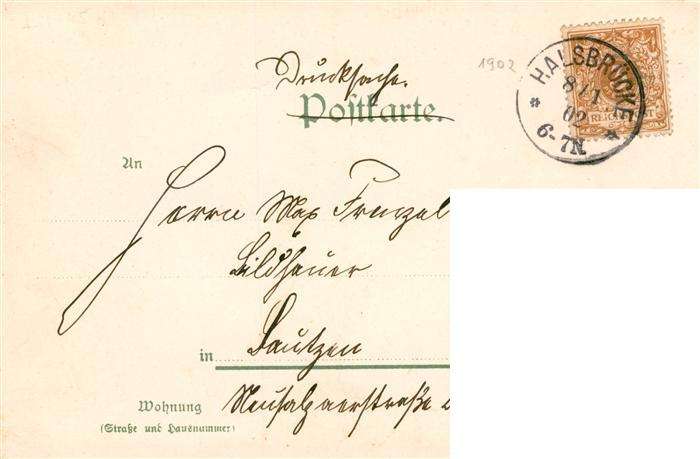 Drucksache.
Postkarte.
1902
HALSBRÜCKE
8/1
02
6-7N.
REICHSPOST
An
Herrn Max Frenzel
Bildhauer
in Bautzen
Wohnung Neusalzaerstraße
(Straße und Hausnummer)